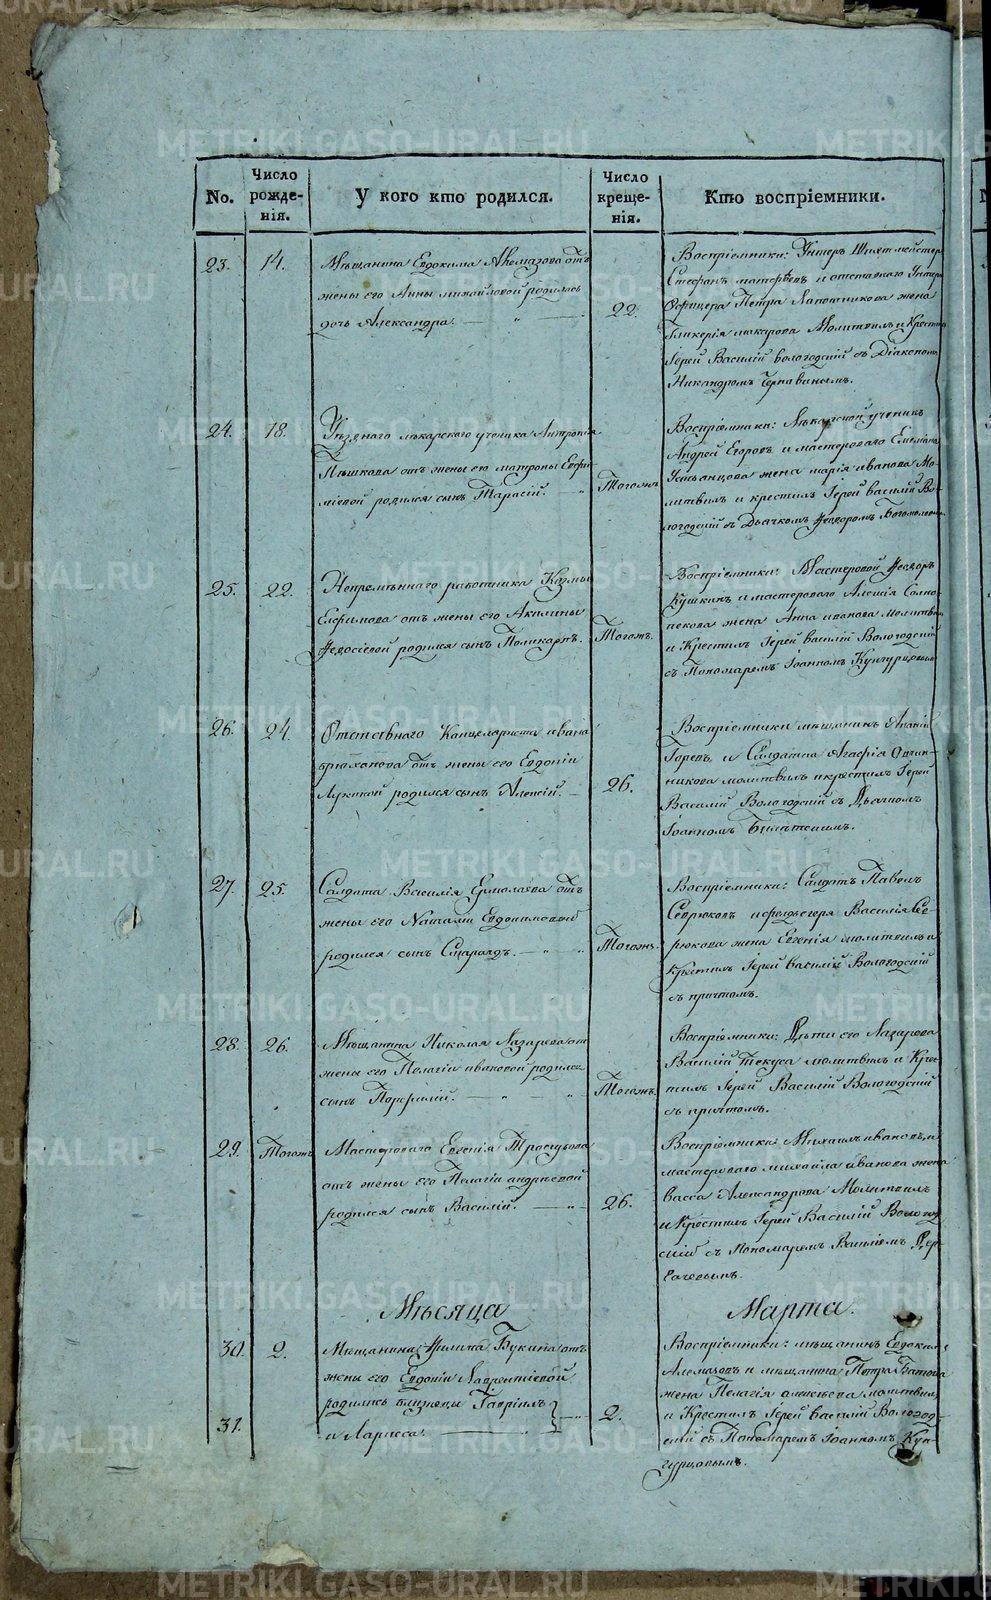 No.
Число рожде-
нія.
У кого кто родился.
Число креще-
нія.
Кто воспріемники.
23.
14.
Мѣщанина Евдокима Алемазова отъ
жены его Анны Михайловой родилась
дочь Александра.
22.
Воспріемники: Унтеръ Шихтмейстеръ
Стефанъ Матфѣевъ и отставнаго Унтеръ
Офицера Петра Лапотникова жена
Гликерія Макарова Молитвилъ и Крестилъ
Іерей Василій Вологодскій съ Діакономъ
Никандромъ Чернавинымъ.
24.
18.
Уѣзднаго лѣкарскаго ученика Антропія
Пѣшкова отъ жены его Матроны Евфи-
міевой родился сынъ Тарасій.
Тогожъ
Воспріемники: Лѣкарской ученикъ
Андрей Егоровъ и мастероваго Емеліана
Устьянцова жена Марія Иванова Мо-
литвилъ и крестилъ Іерей Василій Во-
логодскій съ Дьячкомъ Ѳеодоромъ
25.
22.
Непремѣннаго работника Козмы
Евфимова отъ жены его Акилины
Ѳедосіевой родился сынъ Поликарпъ.
Тогожъ.
Воспріемники: Мастеровой Ѳеодоръ
Кушкинъ и мастероваго Алексія
жена Анна Иванова молитвилъ
и Крестилъ Іерей Василій Вологодскій
съ Пономаремъ Іоанномъ Кунгурцовымъ
26.
24.
Отставнаго Канцеляриста Ивана
Брюханова отъ жены его Евдокіи
Лукиной родился сынъ Алексій.
26.
Воспріемники мѣщанинъ Ананій
и Солдатка Агафія Овчин-
никова молитвилъ и крестилъ Іерей
Василій Вологодскій съ Дьячкомъ
Іоанномъ
27.
25.
Солдата Василія Ермолаева отъ
жены его Наталіи Евдокимовой
родился сынъ Смарагдъ.
Тогожъ
Воспріемники: Солдатъ Павелъ
Севрюковъ и фельдъегеря Василія Сев-
рюкова жена Евгенія молитвилъ и
Крестилъ Іерей Василій Вологодскій
съ причтомъ.
28.
26.
Мѣщанина Николая Лазарева отъ
жены его Пелагіи Ивановой родился
сынъ Порфирій.
Тогожъ
Воспріемники: Дѣти его Лазарева
Василій Текуса молитвилъ и Крес-
тилъ Іерей Василій Вологодскій
съ причтомъ.
29.
Тогожъ
Мастероваго Евгенія
отъ жены его Пелагіи Андреевой
родился сынъ Василій.
26.
Воспріемники: Михаилъ Ивановъ и
мастероваго Михаила Иванова жена
Васса Александрова Молитвилъ
и Крестилъ Іерей Василій Вологод-
скій съ Пономаремъ
Мѣсяца
Марта.
30.
2.
Мѣщанина Филипа Букина отъ
жены его Евдокіи Лаврентіевой
родились близнецы Гавріилъ
31.
и Лариса.
2.
Воспріемники: мѣщанинъ Евдокимъ
Алемазовъ и мѣщанина Петра
жена Пелагія Алексѣева молитвилъ
и Крестилъ Іерей Василій Вологод-
скій съ Пономаремъ Іоанномъ Кун-
гурцовымъ.
METRIKI.GASO-URAL.RU